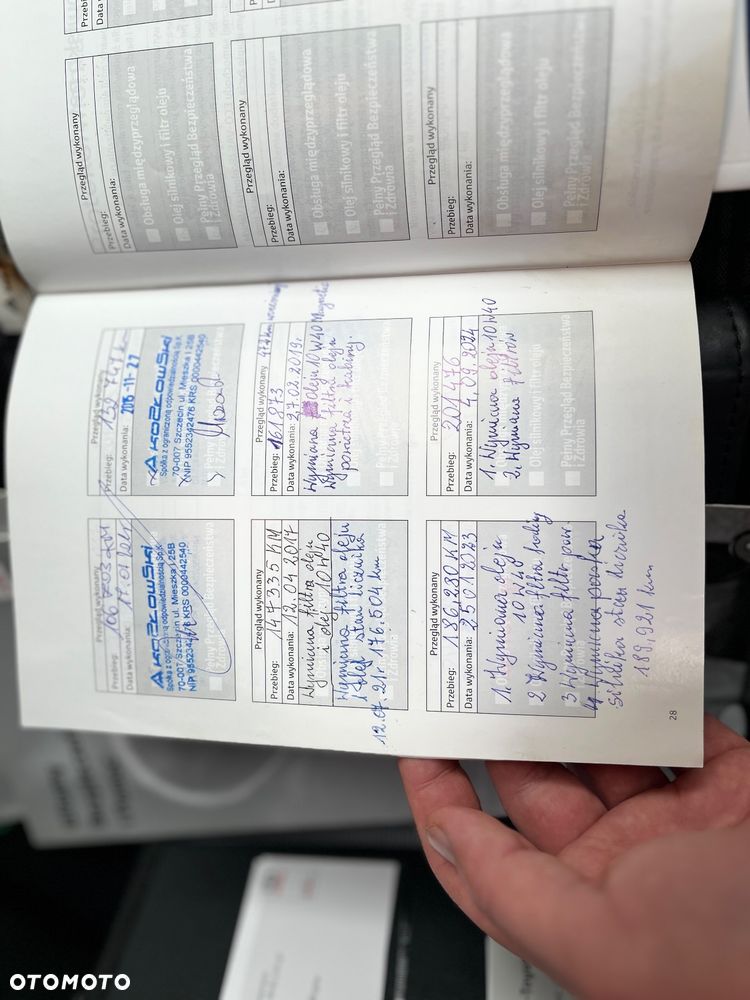 Przegląd wykonany
Przebieg:
Data wykonania: 17.01.
AKOZŁOWSKI
Spółka z ograniczoną odpowiedzialnością Sp.K.
70-007 Szczecin ul. Mieszka I 25B
NIP 9552342476 KRS 0000442540
Pełny Przegląd Bezpieczeństwa
i Zdrowia
Przegląd wykonany
Przebieg: 132 747 km
Data wykonania: 2015-11-27
AKOZŁOWSKI
Spółka z ograniczoną odpowiedzialnością Sp.K.
70-007 Szczecin ul. Mieszka I 25B
NIP 9552342476 KRS 0000442540
Pełny Przegląd Bezpieczeństwa
i Zdrowia
Przegląd wykonany
Przebieg: 147335 KM
Data wykonania: 12.04.2017
Wymiana filtra oleju
i olej. 10W40
Wymiana filtra oleju
i olej stan licznika
12.07.21r 176.504 km
Przegląd wykonany
Przebieg: 161873
Data wykonania: 27.02.2019r.
Wymiana oleju 10W40 Magnatec
Wymiana filtra oleju
powietrza i kabiny.
Przegląd wykonany
Przebieg: 186,280 KM
Data wykonania: 25012023
1. Wymiana oleju
10W40
2 Wymiana filtra
3 Wymiana filtr pow.
4. Wymiana paska
silnika stan licznika
189,921 km
Przegląd wykonany
Przebieg: 201476
Data wykonania: 4,09.2024
1. Wymiana oleju 10W40
2. Wymiana filtrów
Olej silnikowy i filtr oleju
Pełny Przegląd Bezpieczeństwa
i Zdrowia
28
Przebieg:
Data
Przegląd wykonany
Przebieg:
Data wykonania:
Obsługa międzyprzeglądowa
Olej silnikowy i filtr oleju
Pełny Przegląd Bezpieczeństwa
i Zdrowia
Przegląd wykonany
Przebieg:
Data wykonania:
Obsługa międzyprzeglądowa
Olej silnikowy i filtr oleju
Pełny Przegląd Bezpieczeństwa
i Zdrowia
Przegląd wykonany
Przebieg:
Data wykonania:
Obsługa międzyprzeglądowa
Olej silnikowy i filtr oleju
Pełny Przegląd Bezpieczeństwa
i Zdrowia
OTOMOTO